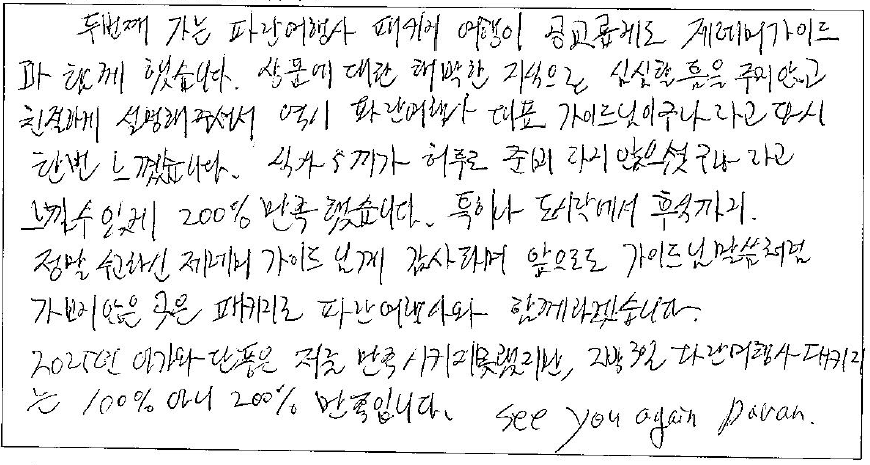 두번째 가는 파란여행사 패키지 여행이 공교롭게도 제레미가이드
와 함께 했습니다. 상문에 대한 해박한 지식으로 심심할 틈을 주지 않고
친절하게 설명해주셔서 역시 파란여행사 대표 가이드님이구나 라고 다시
한번 느꼈습니다. 식사 5끼가 허투로 준비 하지 않으셨구나 라고
느낄수 있게 200% 만족 했습니다. 특히나 도시락에서 후식까지.
정말 수고하신 제레미 가이드님께 감사하며 앞으로도 가이드님말씀처럼
가보지 않은 곳은 패키지로 파란여행사와 함께하겠습니다.
2025년 단풍은 저를 만족시키지못했지만, 2박3일 파란여행사패키지
는 100% 아니 200% 만족입니다. See you again Paran.